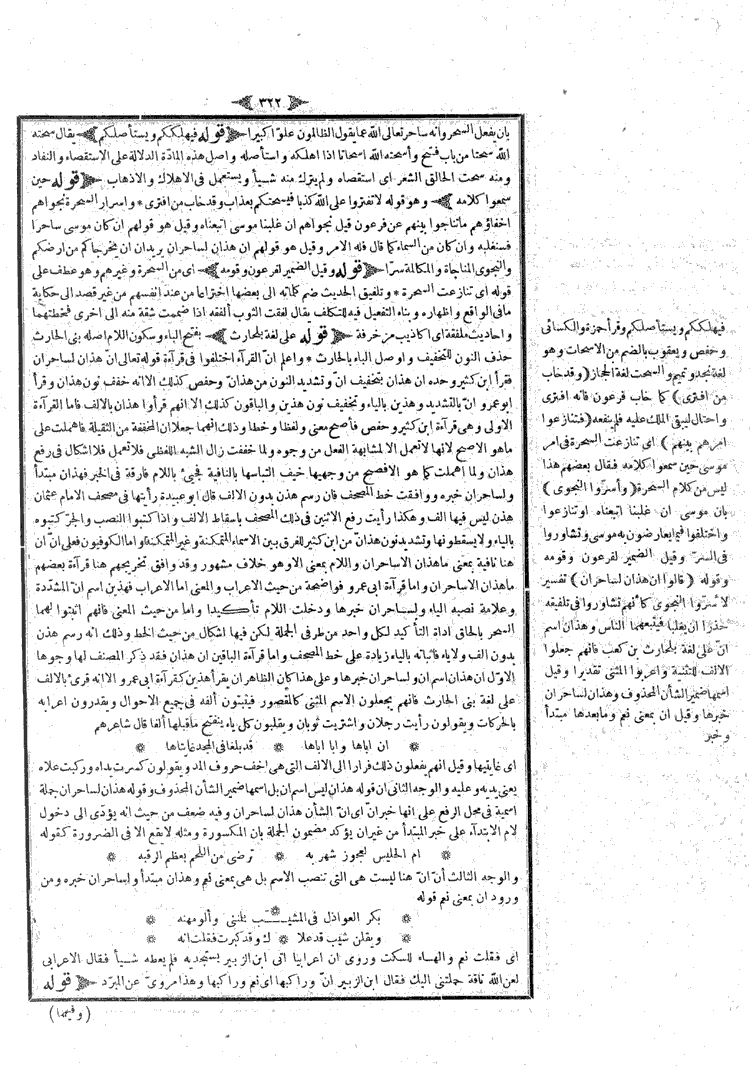 ٣٢٢
بان يفعل السحر وانه ساحر تعالى الله عما يقول الظالمون علوا كبيرا ﴿ قوله فيهلككم ويستأصلكم ﴾ يقال سحته
الله سحتا من باب فتح وأسحته الله اسحاتا اذا اهلكه واستأصله واصل هذه المادة الدلالة على الاستقصاء والنفاد
ومنه سحت الحالق الشعر اى استقصاه ولم يترك منه شيأ ويستعمل فى الاهلاك والاذهاب ﴿ قوله حين
سمعوا كلامه ﴾ وهو قوله لا تفتروا على الله كذبا فيسحتكم بعذاب وقد خاب من افترى * واسرار السحرة نجواهم
اخفاؤهم ما تناجوا بينهم عن فرعون قيل نجواهم ان غلبنا موسى اتبعناه وقيل هو قولهم ان كان موسى ساحرا
فسنغلبه وان كان من السماء كما قال فله الامر وقيل هو قولهم ان هذان لساحران يريدان ان يخرجاكم من ارضكم
والنجوى المناجاة والمكالمة سرا ﴿ قوله وقيل الضمير لفرعون وقومه ﴾ اى من السحرة وغيرهم وهو عطف على
قوله اى تنازعت السحرة * وتلفيق الحديث ضم كلماته الى بعضها اختراعا من عند انفسهم من غير قصد الى حكاية
ما فى الواقع واظهاره وبناء التفعيل فيه للتكلف يقال لفقت الثوب ألفقه اذا ضممت شقة منه الى اخرى فخطتهما
واحاديث ملفقة اى اكاذيب مزخرفة ﴿ قوله على لغة بلحارث ﴾ بفتح الباء وسكون اللام اصله بنى الحارث
حذف النون للتخفيف واوصل الباء بالحارث * واعلم ان القراء اختلفوا فى قراءة قوله تعالى ان هذان لساحران
فقرأ ابن كثير وحده ان هذان بتخفيف ان وتشديد النون من هذان وحفص كذلك الا انه خفف نون هذان وقرأ
ابو عمرو ان بالتشديد وهذين بالياء وتخفيف نون هذين والباقون كذلك الا انهم قرأوا هذان بالالف فاما القراءة
الاولى وهى قراءة ابن كثير وحفص فاصح معنى ولفظا وخطا وذلك انهما جعلا ان المخففة من الثقيلة فاهملت على
ماهو الاصح لانها لا تعمل الا لمشابهة الفعل من وجوه ولما خففت زال الشبه اللفظى فلا تعمل فلا اشكال فى رفع
هذان ولما اهملت كما هو الافصح من وجهيها خيف التباسها بالنافية فجئ باللام فارقة فى الخبر فهذان مبتدأ
ولساحران خبره ووافقت خط المصحف فان رسم هذن بدون الالف قال ابو عبيدة رأيتها فى مصحف الامام عثمان
هذن ليس فيها الف وهكذا رأيت رفع الاثنين فى ذلك المصحف باسقاط الالف واذا كتبوا النصب والجر كتبوه
بالياء ولا يسقطونها وتشديد نون هذان من ابن كثير للفرق بين الاسماء المتمكنة وغير المتمكنة واما الكوفيون فعلى ان ان
هنا نافية بمعنى ما هذان الا ساحران واللام بمعنى الا وهو خلاف مشهور وقد وافق تخريجهم هنا قراءة بعضهم
ما هذان الا ساحران واما قراءة ابى عمرو فواضحة من حيث الاعراب والمعنى اما الاعراب فهذين اسم ان المشددة
وعلامة نصبه الياء ولساحران خبرها ودخلت اللام تأكيدا واما من حيث المعنى فانهم اثبتوا لهما
السحر بالحاق اداة التأكيد لكل واحد من طرفى الجملة لكن فيها اشكال من حيث الخط وذلك انه رسم هذن
بدون الف ولا ياء فاثباته بالياء زيادة على خط المصحف واما قراءة الباقين ان هذان فقد ذكر المصنف لها وجوها
الاول ان هذان اسم ان ولساحران خبرها وعلى هذا كان الظاهر ان يقرأ هذين كقراءة ابى عمرو الا انه قرئ بالالف
على لغة بنى الحارث فانهم يجعلون الاسم المثنى كالمقصور فيثبتون ألفه فى جميع الاحوال ويقدرون اعرابه
بالحركات ويقولون رأيت رجلان واشتريت ثوبان ويقلبون كل ياء ينفتح ماقبلها ألفا قال شاعرهم
❊ ان اباها وابا اباها ❊ قد بلغا فى المجد غايتاها ❊
اى غايتيها وقيل انهم يفعلون ذلك فرارا الى الالف التى هى اخف حروف المد ويقولون كسرت يداه وركبت علاه
يعنى يديه وعليه والوجه الثانى ان قوله هذان ليس اسم ان بل اسمها ضمير الشأن المحذوف وقوله هذان لساحران جملة
اسمية فى محل الرفع على انها خبر ان اى ان الشأن هذان لساحران وفيه ضعف من حيث انه يؤدى الى دخول
لام الابتداء على خبر المبتدأ من غير ان يؤكد مضمون الجملة بان المكسورة ومثله لا يقع الا فى الضرورة كقوله
❊ ام الحليس لعجوز شهر به ❊ ترضى من اللحم بعظم الرقبه ❊
والوجه الثالث أن ان هنا ليست هى التى تنصب الاسم بل هى بمعنى نعم وهذان مبتدأ ولساحران خبره ومن
ورود ان بمعنى نعم قوله
❊ بكر العواذل فى المشيب يلمننى وألومهنه ❊
❊ ويقلن شيب قد علا ❊ ك وقد كبرت فقلت انه ❊
اى فقلت نعم والهاء للسكت وروى ان اعرابيا اتى ابن الزبير يستجديه فلم يعطه شيأ فقال الاعرابى
لعن الله ناقة حملتنى اليك فقال ابن الزبير ان وراكبها اى نعم وراكبها وهذا مروى عن المبرد ﴿ قوله
( وفيهما )
فيهلككم ويستأصلكم وقرأ حمزة والكسائى
وحفص ويعقوب بالضم من الاسحات وهو
لغة نجد وتميم والسحت لغة الحجاز ( وقد خاب
من افترى ) كما خاب فرعون فانه افترى
واحتال ليبقى الملك عليه فلم ينفعه ( فتنازعوا
امرهم بينهم ) اى تنازعت السحرة فى امر
موسى حين سمعوا كلامه فقال بعضهم هذا
ليس من كلام السحرة ( وأسروا النجوى )
بان موسى ان غلبنا اتبعناه او تنازعوا
واختلفوا فيما يعارضون به موسى وتشاوروا
فى السر وقيل الضمير لفرعون وقومه
وقوله ( قالوا ان هذان لساحران ) تفسير
لأسروا النجوى كأنهم تشاوروا فى تلفيقه
حذرا ان يغلبا فيتبعهما الناس وهذان اسم
ان على لغة بلحارث بن كعب فانهم جعلوا
الالف للتثنية واعربوا المثنى تقديرا وقيل
اسمها ضمير الشأن المحذوف وهذان لساحران
خبرها وقيل ان بمعنى نعم وما بعدها مبتدأ
وخبر